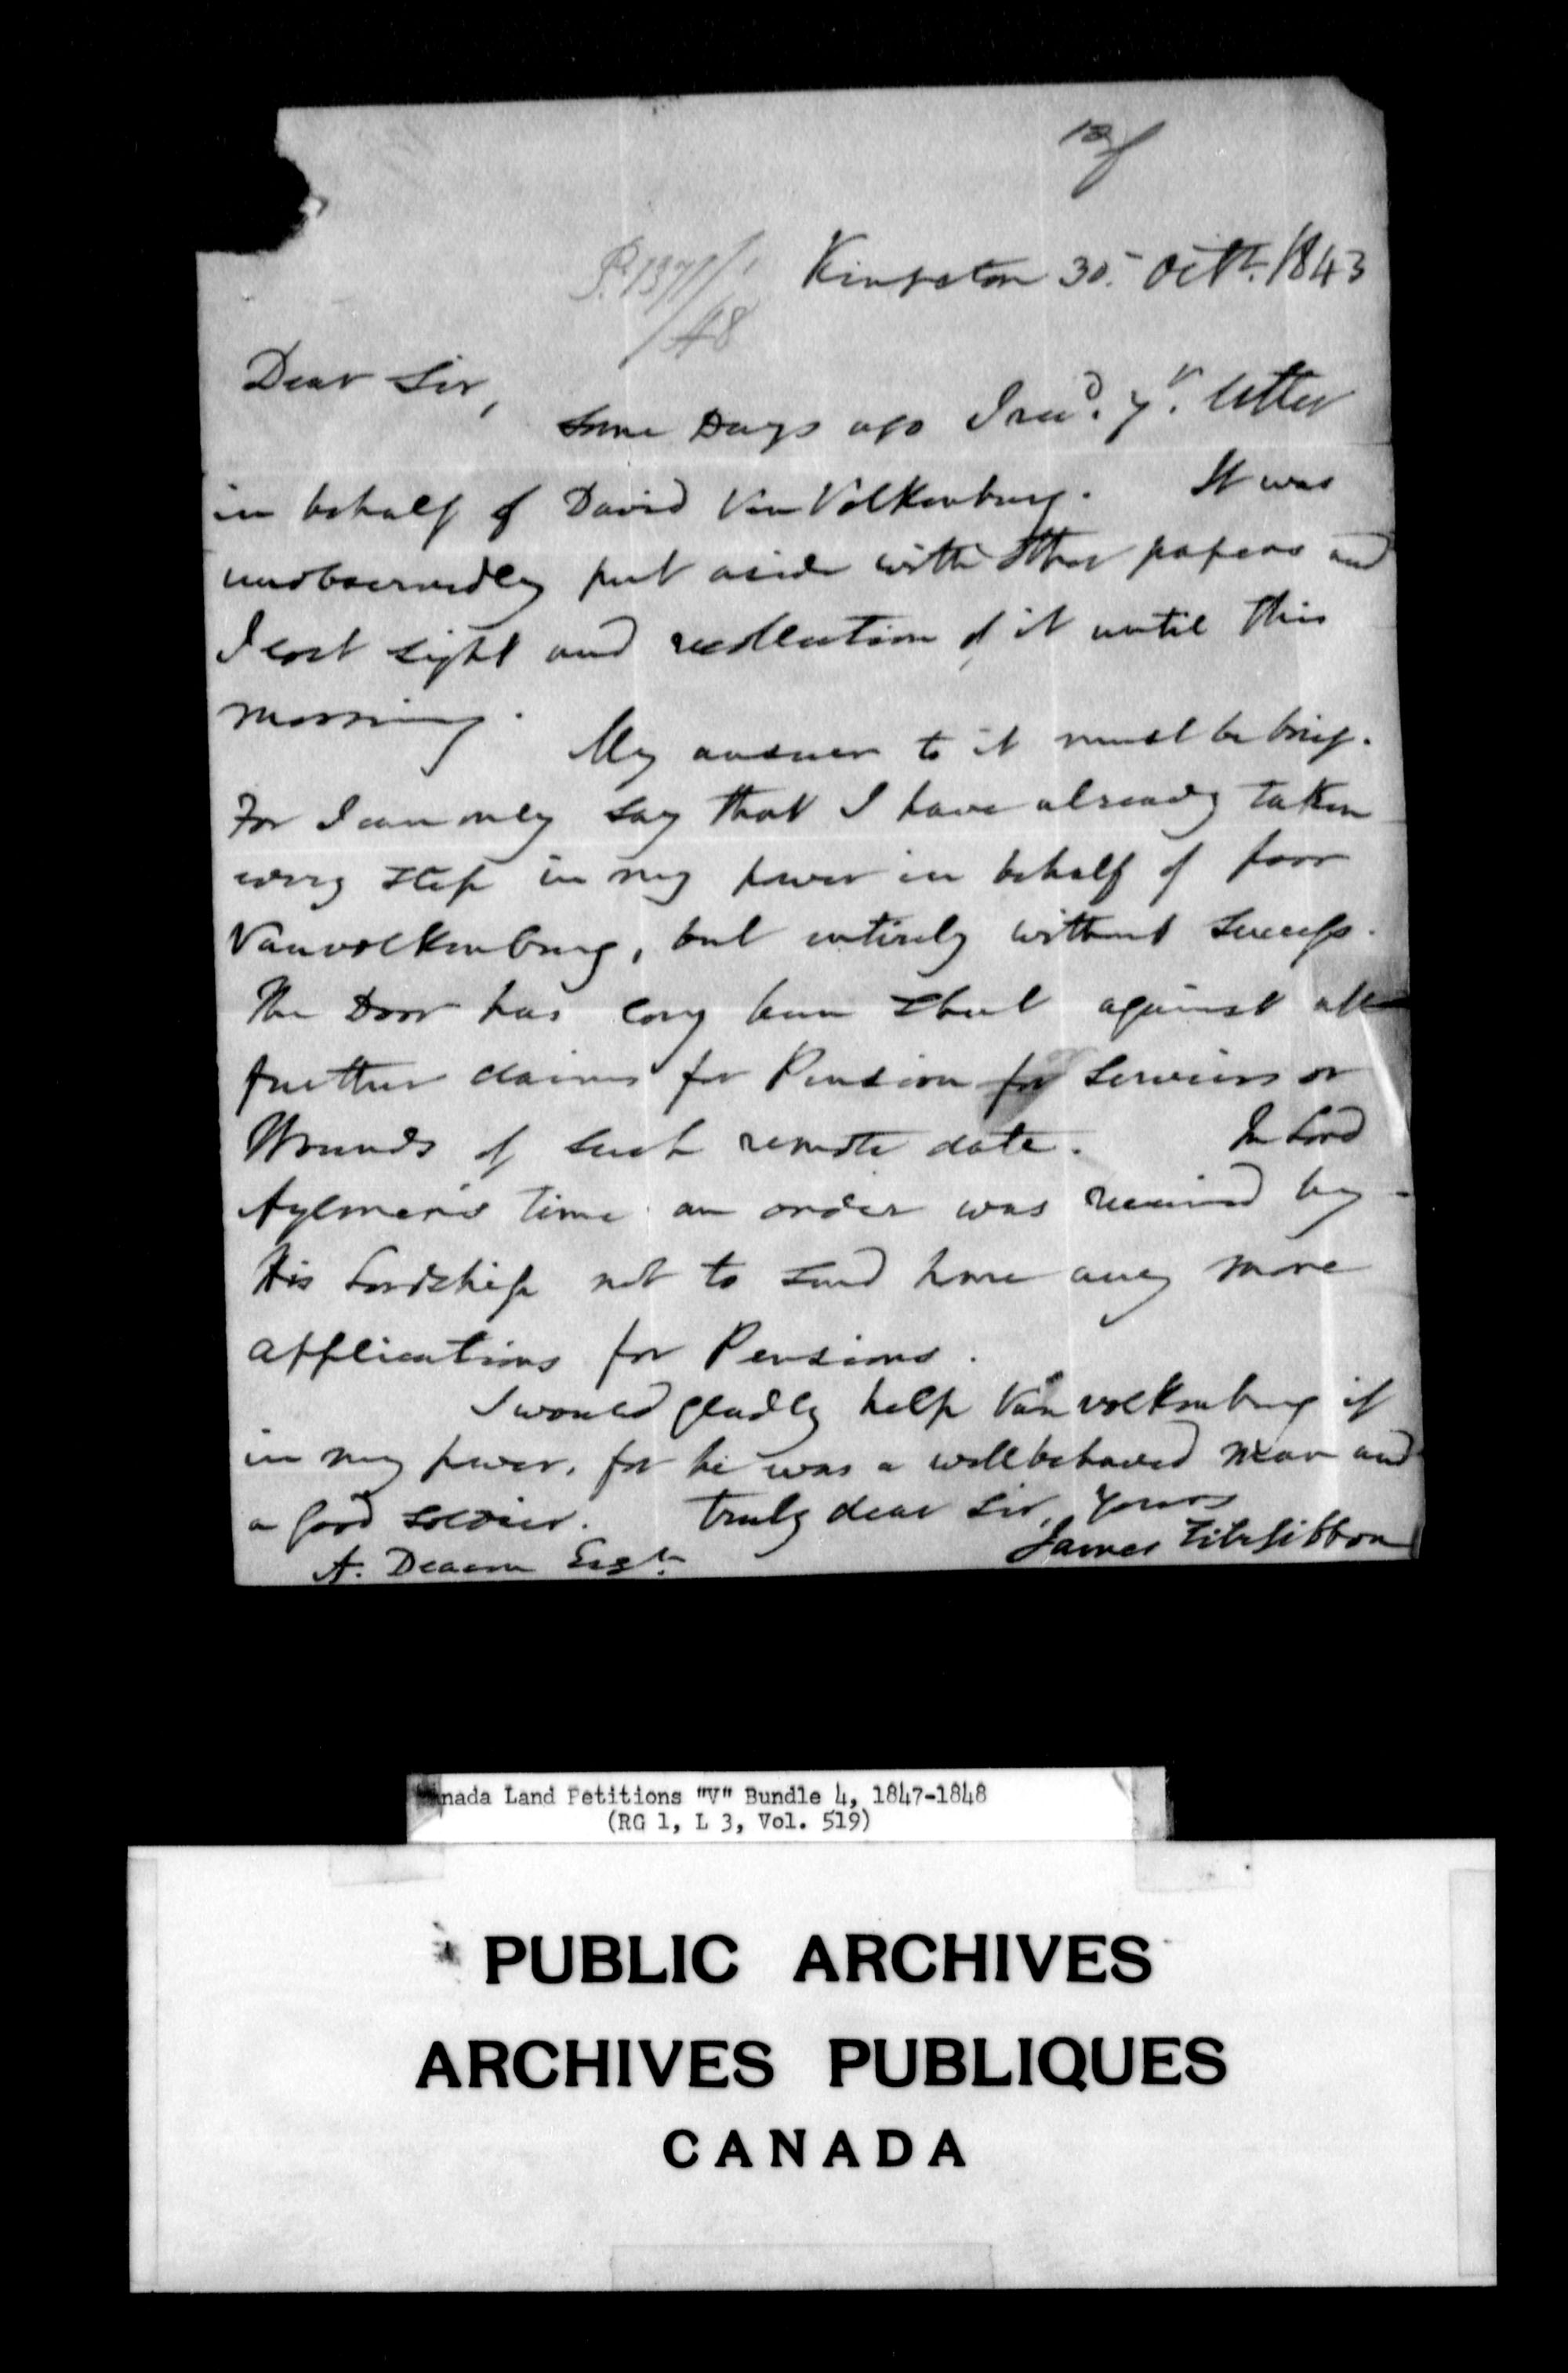 12
P. 1371/1
/48
Kingston 30. Octr. 1843
Dear Sir,
Some Days ago I recd. yr. letter
in behalf of David Van Volkenburg. It was
unobservedly put aside with other papers and
I lost sight and recollection of it until this
morning.
My answer to it must be brief.
For I can only say that I have already taken
every step in my power in behalf of poor
Vanvolkenburg, but entirely without success.
The Door has long been shut against all
further claims for Pension for Services or
Wounds of such remote date. In Lord
Aylmer's time an order was received by
His Lordship not to send home any more
applications for Pensions.
I would gladly help Vanvolkenburg if
in my power, for he was a well behaved man and
a good soldier. Truly dear Sir, Yours
James FitzGibbon
A. Deacon Esqr.
nada Land Petitions "V" Bundle 4, 1847-1848
(RG 1, L 3, Vol. 519)
PUBLIC ARCHIVES
ARCHIVES PUBLIQUES
CANADA